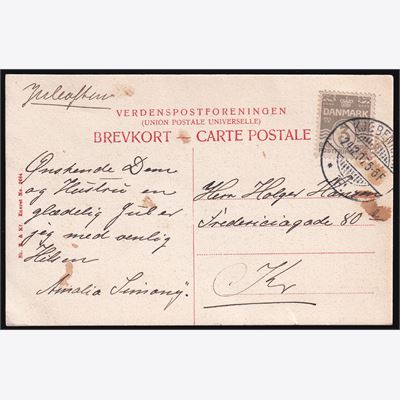 Juleaften
VERDENSPOSTFORENINGEN
(UNION POSTALE UNIVERSELLE)
BREVKORT – CARTE POSTALE
DANMARK
3
Ønskende Dem
og Hustru en
glædelig Jul er
jeg med venlig
Hilsen
Amalia Simony.
Herr Holger
Fredericiagade 80
Kr